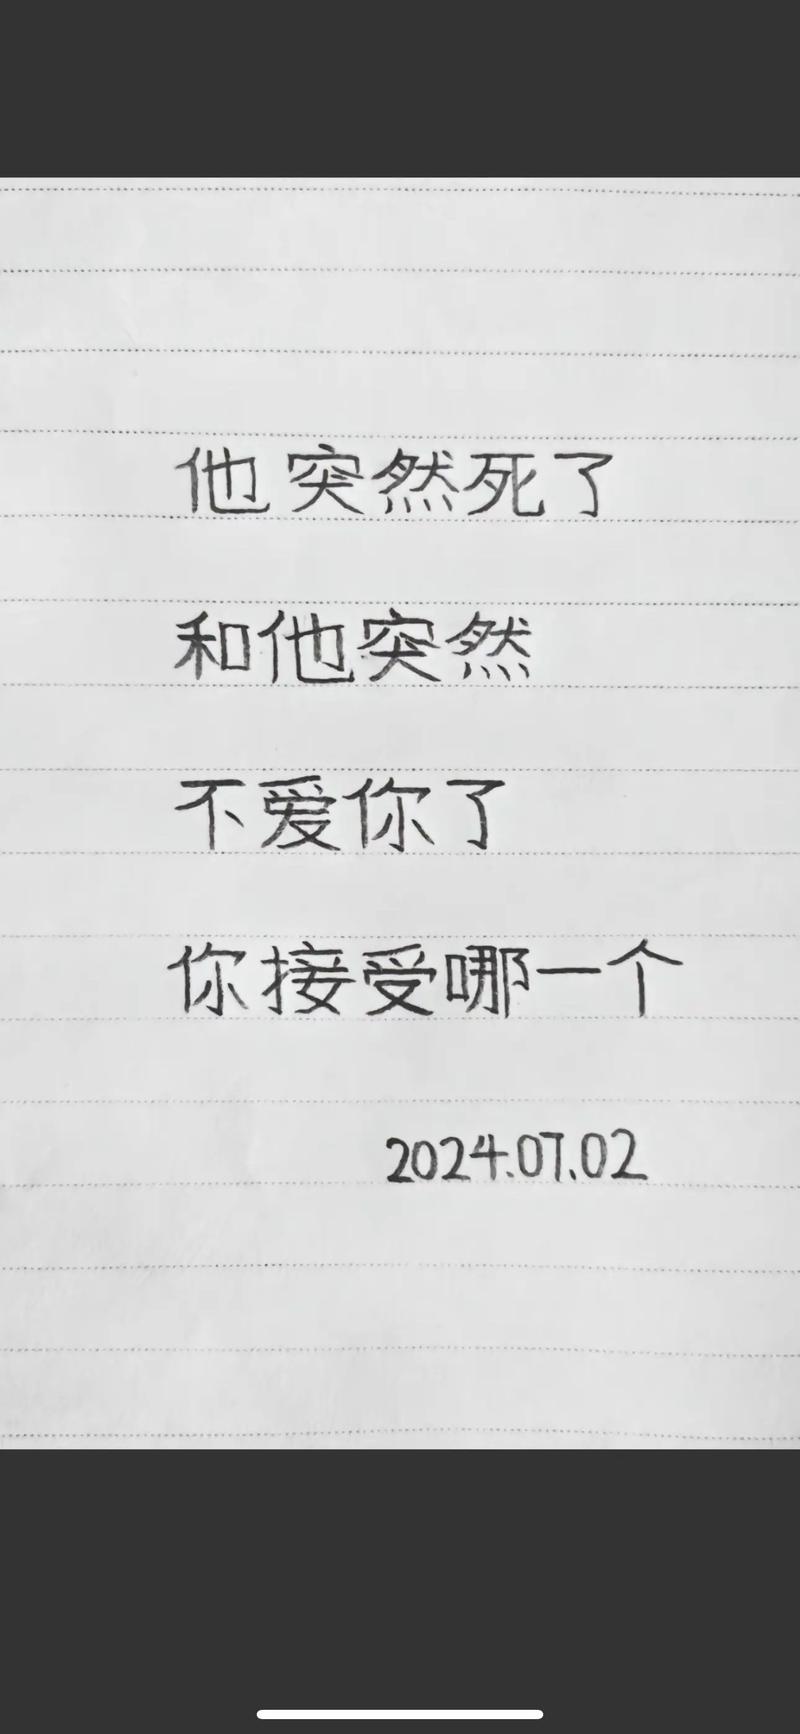 他突然死了
和他突然
不爱你了
你接受哪一个
2024.07.02